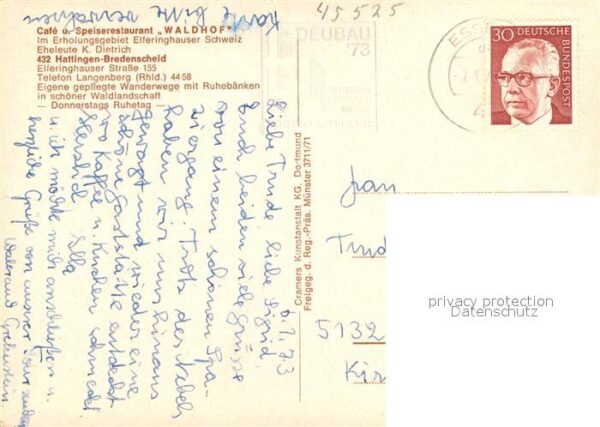 Karte bitte verwahren
45525
Café u. Speiserestaurant "WALDHOF"
Im Erholungsgebiet Elferinghauser Schweiz
Eheleute K. Dietrich
432 Hattingen-Bredenscheid
Elferinghauser Straße 155
Telefon Langenberg (Rhld.) 44 58
Eigene gepflegte Wanderwege mit Ruhebänken
in schöner Waldlandschaft
— Donnerstags Ruhetag —
DEUBAU
'73
ESS
30 DEUTSCHE
BUNDESPOST
Cramers Kunstanstalt KG. Dortmund
Freigeg. d. Reg.-Präs. Münster 3711/71
6.1.73
Liebe Trude, liebe Sigrid,
Euch beiden viele Grüße
von einem schönen Spa-
ziergang. Trotz des Nebels
haben wir uns hinaus
gewagt und wieder eine
schöne Gaststätte entdeckt
wo Kaffee u. Kuchen schmeckt
Herzlich Ella
u. ich möchte mich anschließen u.
herzliche Grüße von unserer
Waltraud
Fran
Trud
5132
Kir
privacy protection
Datenschutz